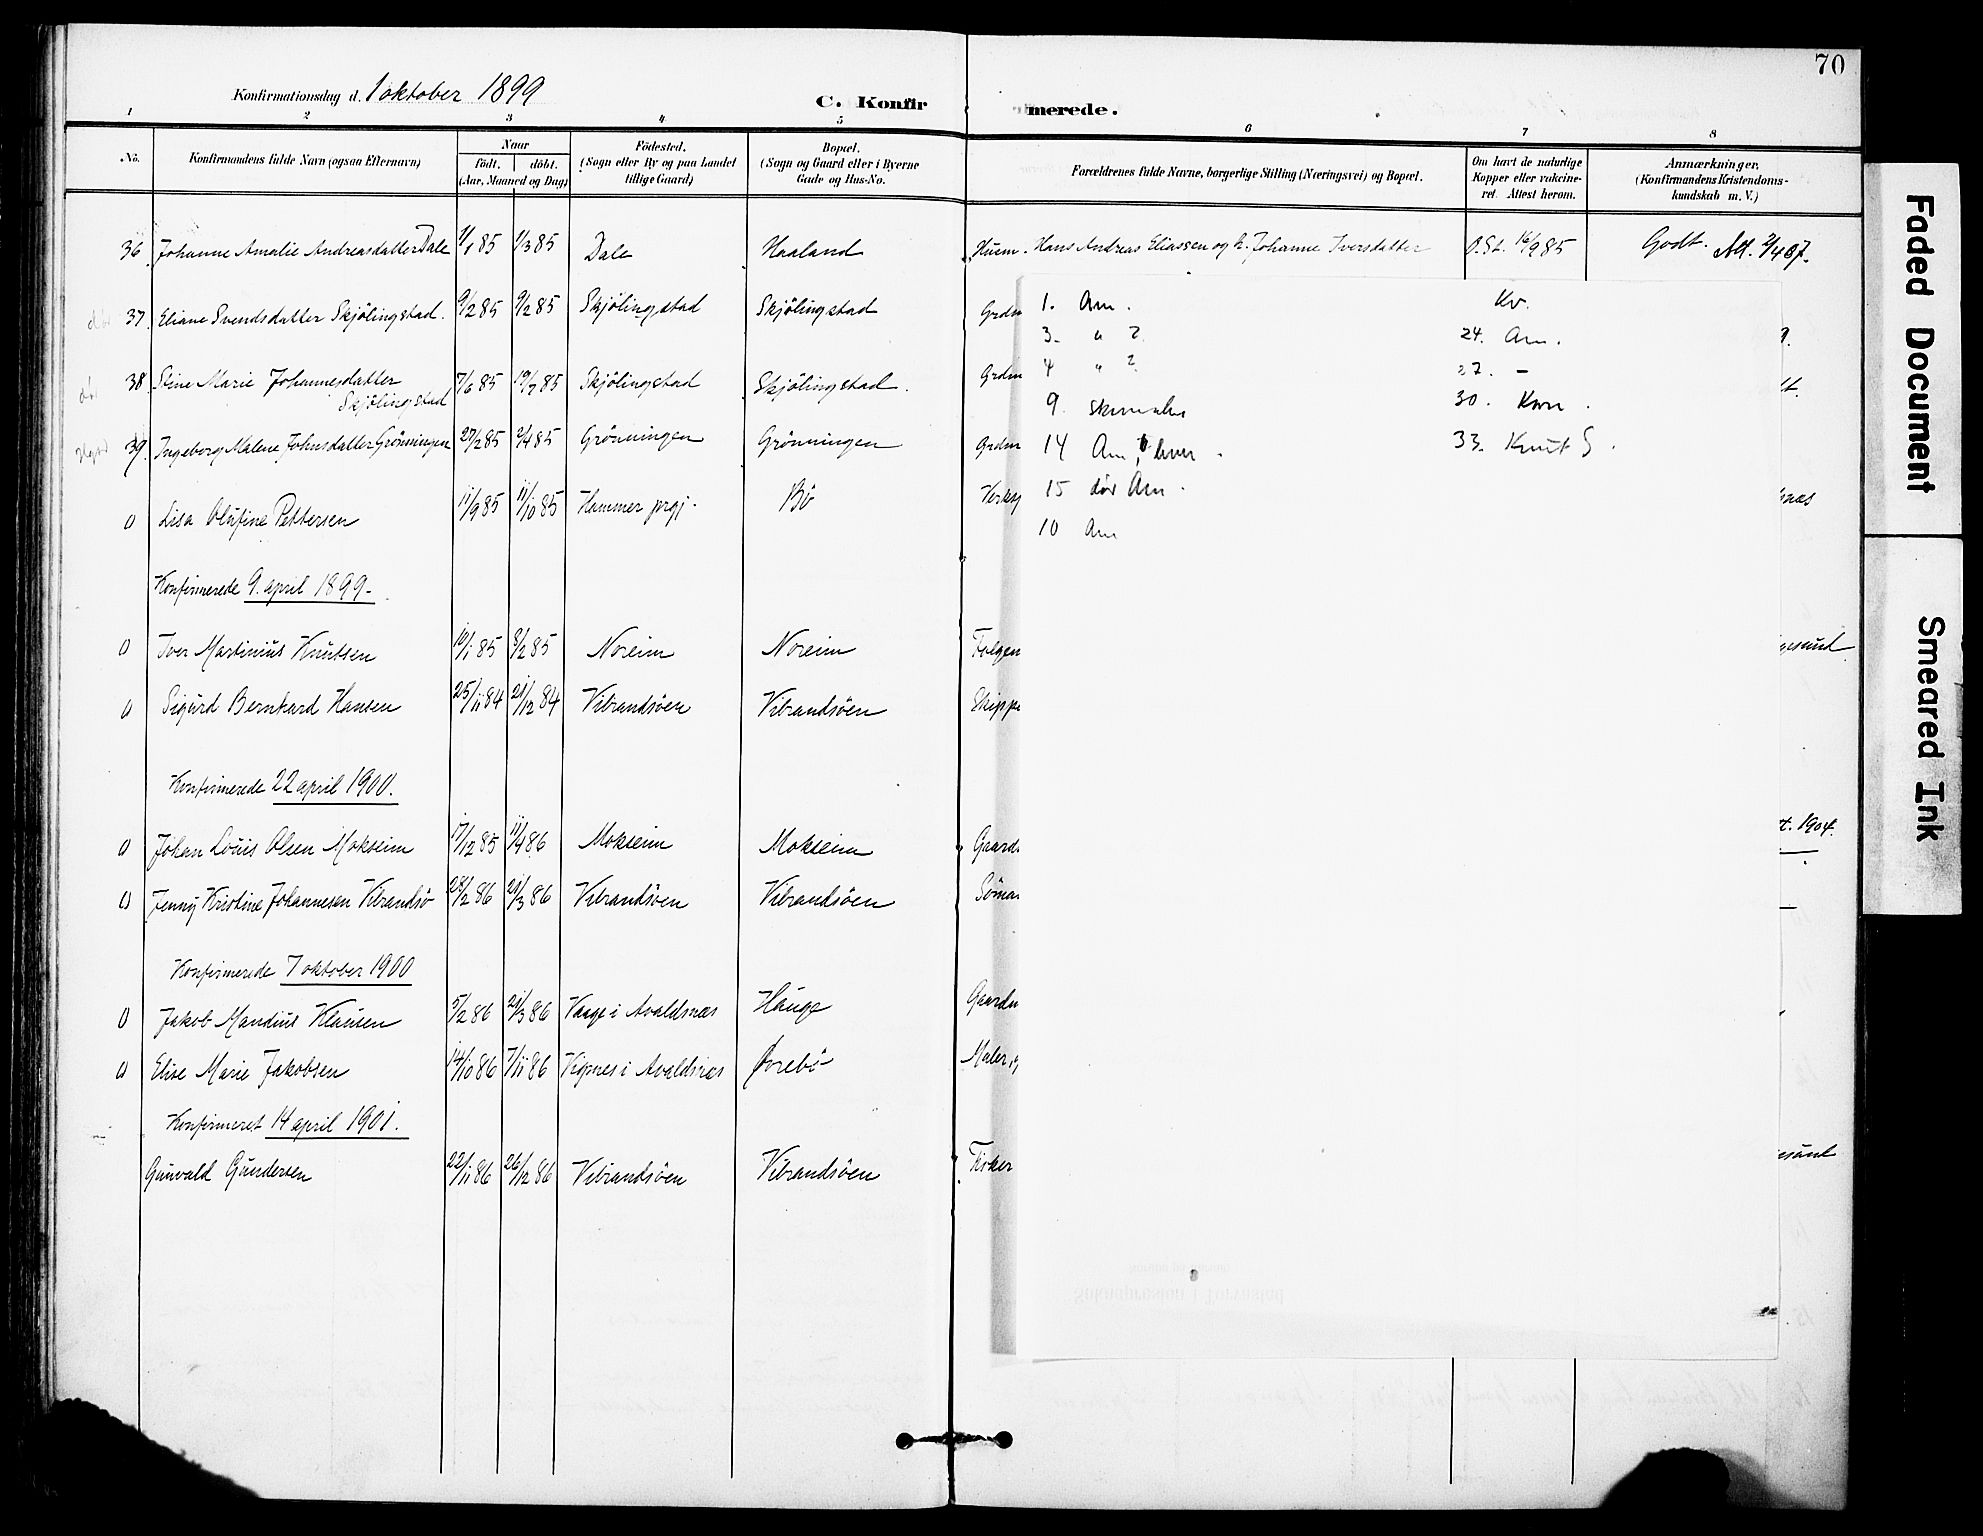 70
Konfirmationsdag d. 1 oktober 1899
C. Konfirmerede.
1 2 3 4 5 6 7 8
No.
Konfirmandens fulde Navn (ogsaa Efternavn)
Naar
födt. döbt.
(Aar, Maaned og Dag)
Födested.
(Sogn eller By og paa Landet
tillige Gaard)
Bopæl.
(Sogn og Gaard eller i Byerne
Gade og Hus-No.
Forældrenes fulde Navne, borgerlige Stilling (Næringsvei) og Bopæl.
Om havt de naturlige
Kopper eller vakcine-
ret. Attest herom.
Anmærkninger,
(Konfirmandens Kristendoms-
kundskab m. V.)
36 Johanne Amalie Andreasdatter Dale 1/1 85 1/3 85 Dale Haaland Husm. Hans Andreas Eliassen og h. Johanne Iversdatter O. St. 16/9 85 Godt. Att. 3/4 07.
37. Eliane Svendsdatter Skjölingstad. 9/2 85 9/2 85 Skjölingstad Skjölingstad Grdm
38. Stine Marie Johannesdatter 7/6 85 19/7 85 Skjölingstad Skjölingstad. Grdm
Skjölingstad
39. Ingeborg Malene Johnsdatter Grönningen 27/2 85 2/4 85 Grönningen Grönningen Grdm
0 Lisa Olufine Pettersen 11/9 85 11/10 85 Hammer prgj. Bö
Konfirmerede 9. april 1899.
0 Iver Martinius Knutsen 10/1 85 8/2 85 Noreim Noreim
0 Sigurd Bernhard Hansen 25/11 84 21/12 84 Vibrandsöen Vibrandsöen Skippe
Konfirmerede 22 april 1900.
0 Johan Louis Olsen Mokseim 17/12 85 11/4 86 Mokseim Mokseim Gaard t. 1904.
0 Jenny Kristine Johannesen Vibrandsö 28/2 86 21/3 86 Vibrandsöen Vibrandsöen Söma
Konfirmerede 7 oktober 1900
0 Jakob Mandius Klausen 5/2 86 21/3 86 Vaage i Avaldsnæs Hauge Gaardm
0 Elise Marie Jakobsen 14/10 86 7/11 86 Vignes i Avaldsnæs Övrebö Maler
Konfirmeret 14 april 1901.
Gunvald Gundersen 22/11 86 26/12 86 Vibrandsöen Vibrandsöen Fisker
1. Am.
3. " ?
4 " ?
9.
14 Am,
15 döv Am.
10 Am
Kv.
24. Am.
27. –
30.
33. Knut S.
Faded Document
Smeared Ink